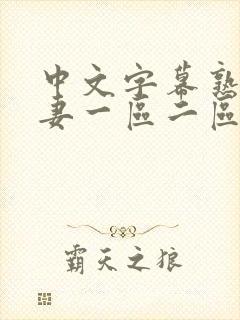 中文字幕熟
妻一區二區
霸天之狼